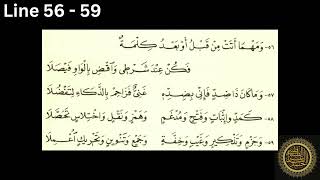 Line 56 - 59
٥٦- وَمَهْمَا أَتَتْ مِنْ قَبْلُ أَوْ بَعْدُ كِلْمَةٌ
فَكُنْ عِنْدَ شَرْطِي وَاقْضِ بِالْوَاوِ فَيْصَلَا
٥٧- وَمَا كَانَ ذَا ضِدٍّ فَإِنِّي بِضِدِّهِ غَنِيٌّ فَزَاحِمْ بِالذَّكَاءِ لِتَفْضُلَا
٥٨- كَمَدٍّ وَإِثْبَاتٍ وَفَتْحٍ وَمُدْغَمٍ وَهَمْزٍ وَنَقْلٍ وَاخْتِلَاسٍ تَحَصَّلَا
٥٩- وَجَزْمٍ وَتَذْكِيرٍ وَغَيْبٍ وَخِفَّةٍ وَجَمْعٍ وَتَنْوِينٍ وَتَحْرِيكٍ اعْمِلَا